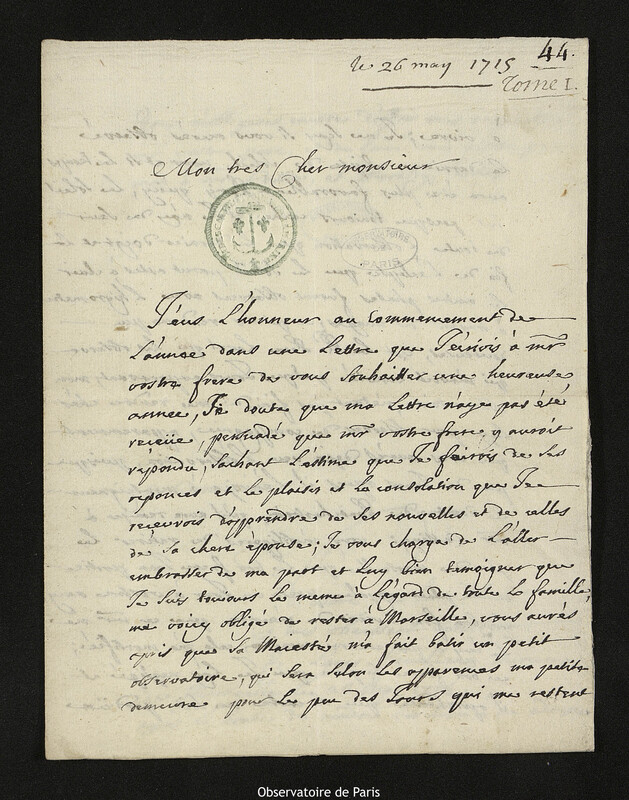 44.
le 26 may 1715
Tome I.
Mon tres Cher monsieur
OBSERVATOIRE
PARIS
J'éus L'honneur au Commencement de
L'année dans une Lettre que J'écrivis à mr
vostre frere de vous souhaitter une heureuse
année, Je doute que ma Lettre n'aye pas été
receüe, persuadé que mr vostre frere y auroit
répondu, sachant L'estime que Je fairois de ses
reponces et le plaisir et la consolation que Je
recevrois d'apprendre de ses nouvelles et de celles
de sa chere épouse; Je vous charge de L'aller
embrasser de ma part et Luy bien temoigner que
Je suis toujours le meme à L'égard de toute la famille,
me voicy obligé de rester à Marseille, vous aurés
apris que sa Majesté m'a fait batir un petit
observatoire, qui sera selon les apparences ma petite
demeure pour le peu des Jours qui me restent
Observatoire de Paris